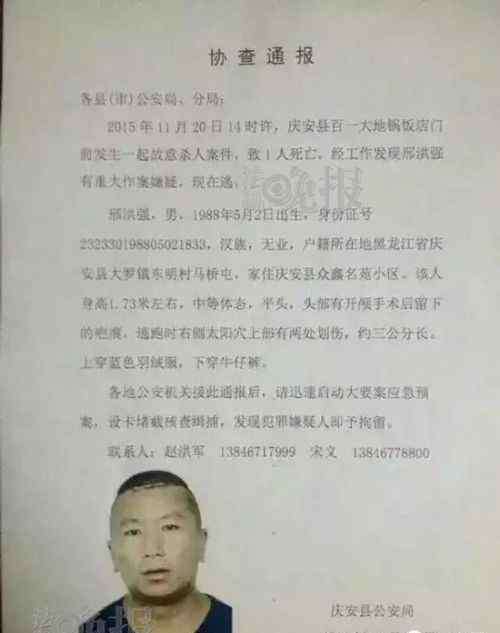 协查通报
各县(市)公安局、分局:
2015年11月20日14时许，庆安县百一大地锅饭店门
前发生一起故意杀人案件，致1人死亡，经工作发现邢洪强
有重大作案嫌疑，现在逃。
邢洪强，男，1988年5月2日出生，身份证号
232330198805021833，汉族，无业，户籍所在地黑龙江省庆
安县大罗镇东明村马桥屯，家住庆安县众鑫名苑小区。该人
身高1.73米左右，中等体态，平头，头部有开颅手术后留下
的疤痕，逃跑时右侧太阳穴上部有两处划伤，约三公分长。
上穿蓝色羽绒服，下穿牛仔裤。
各地公安机关接此通报后，请迅速启动大要案应急预
案，设卡堵截核查缉捕，发现犯罪嫌疑人即予拘留。
联系人：赵洪军 13846717999 宋文 13846778800
庆安县公安局
法制晚报